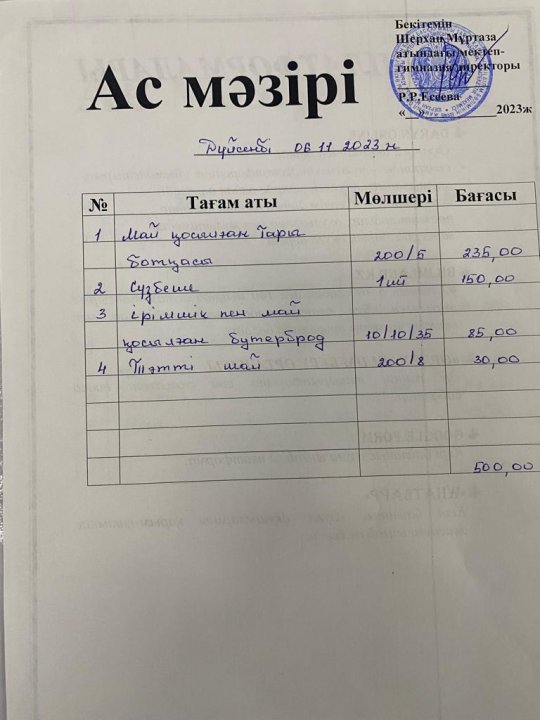 Бекітемін
Шерхан Мұртаза
атындағы мектеп-
гимназия директоры
Р.Р.Есеева
« » 2023ж
Ас мәзірі
Дүйсенбі 06 11 2023 ж
№ Тағам аты Мөлшері Бағасы
1 Май қосылған тары
ботқасы 200/5 235,00
2 Сүзбеше 1шт 150,00
3 ірімшік пен май
қосылған бутерброд 10/10/35 85,00
4 Тәтті шай 200/8 30,00
500,00